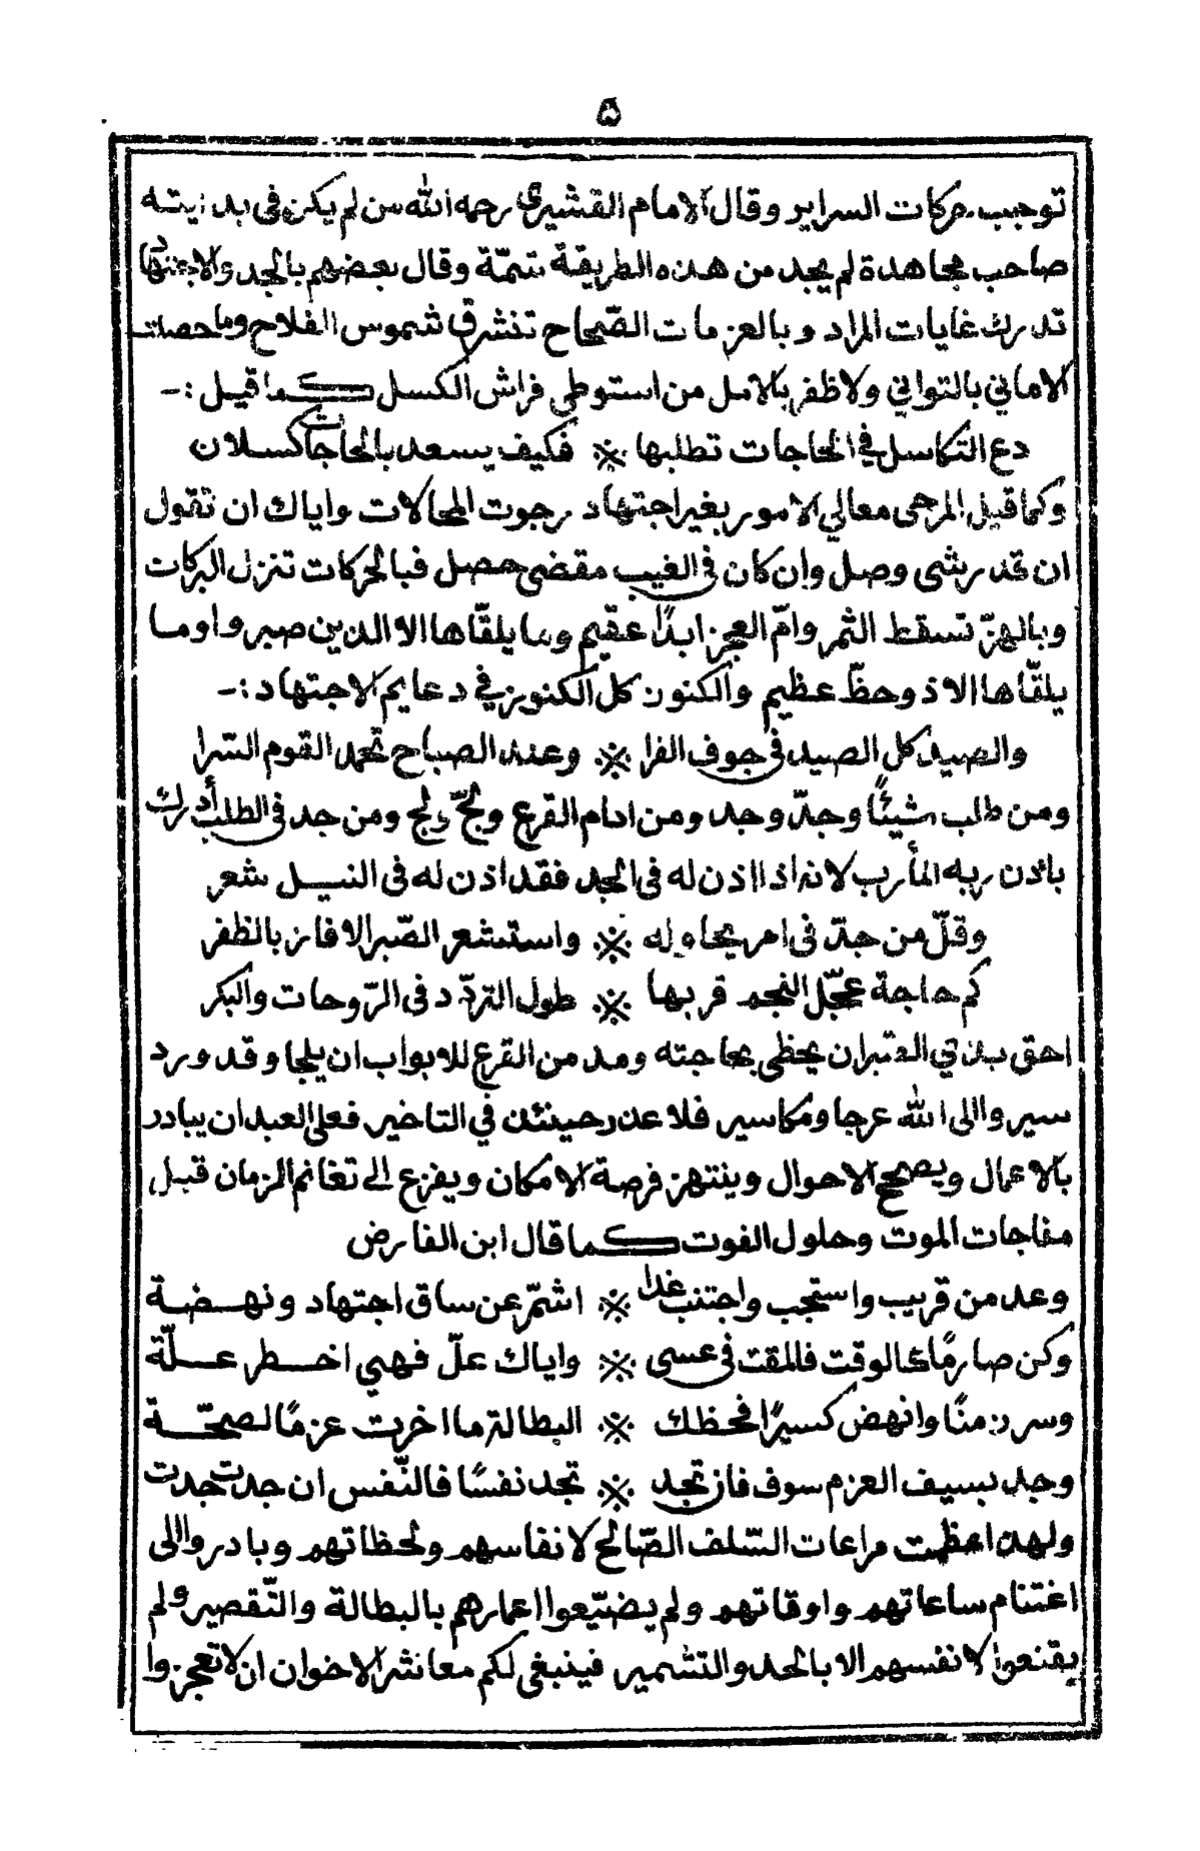 ٥
توجب حركات السراير وقال الامام القشيري رحمه الله من لم يكن فى بدايته
صاحب مجاهدة لم يجد من هذه الطريقة شمّة وقال بعضهم بالجد والاجتهاد
تدرك غايات المراد وبالعزمات الصّحاح تشرق شموس الفلاح وما حصلت
الاماني بالتواني ولا ظفر بالامل من استوطى فراش الكسل كما قيل :-
دع التكاسل في الحاجات تطلبها ※ فكيف يسعد بالحاجات كسلان
وكما قيل المرجى معالي الامور بغير اجتهاد رجوت المحالات واياك ان تقول
ان قدر شى وصل وان كان فى الغيب مقضى حصل فبالحركات تنزل البركات
وبالهزّ تسقط الثمر وامّ العجز ابدًا عقيم وما يلقّاها الا الذين صبروا وما
يلقّاها الا ذو حظّ عظيم والكنوز كل الكنوز في دعايم الاجتهاد :-
والصيد كل الصيد فى جوف الفرا ※ وعند الصباح تحمد القوم السّرا
ومن طلب شيئًا وجدّ وجد ومن ادام القرع ولجّ ولج ومن جد فى الطلب أدرك
باذن ربه المأرب لانه اذا اذن له فى الجد فقد اذن له فى النيل شعر
وقلّ من جدّ فى امر يحاوله ※ واستشعر الصّبر الا فاز بالظفر
كم حاجة عجّل النجح قربها ※ طول التردّد فى الرّوحات والبكر
احق بذي الصبر ان يحظى بحاجته ومدمن القرع للابواب ان يلجا وقد ورد
سيروا الى الله عرجا ومكاسير فلا عذر حينئذ في التاخير فعلى العبد ان يبادر
بالاعمال ويصحح الاحوال وينتهز فرصة الامكان ويفزع الى تغانم الزمان قبل
مفاجات الموت وحلول الفوت كما قال ابن الفارض
وعد من قريب واستجب واجتنب غدا ※ اشمّر عن ساق اجتهاد ونهضة
وكن صارمًا كالوقت فالمقت فى عسى ※ واياك علّ فهي اخطر علّة
وسر زمنًا وانهض كسيرًا فحظك ※ البطالة ما اخرت عزمًا لصحّة
وجد بسيف العزم سوف فان تجد ※ تجد نفسًا فالنّفس ان جدت جدت
ولهذا عظمت مراعات السّلف الصّالح لانفاسهم ولحظاتهم وبادروا الى
اغتنام ساعاتهم واوقاتهم ولم يضيّعوا اعمارهم بالبطالة والتّقصير ولم
يقنعوا لانفسهم الا بالجد والتشمير فينبغى لكم معاشر الاخوان ان لا تعجزوا